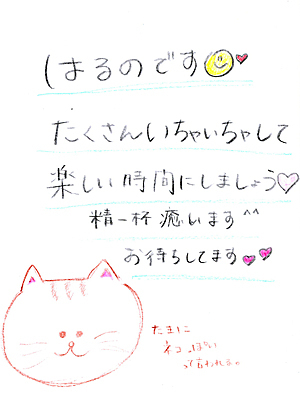 はるのです
たくさんいちゃいちゃして
楽しい時間にしましょう♡
精一杯癒します^^
お待ちしてます
たまに
ネコっぽい
って言われるの